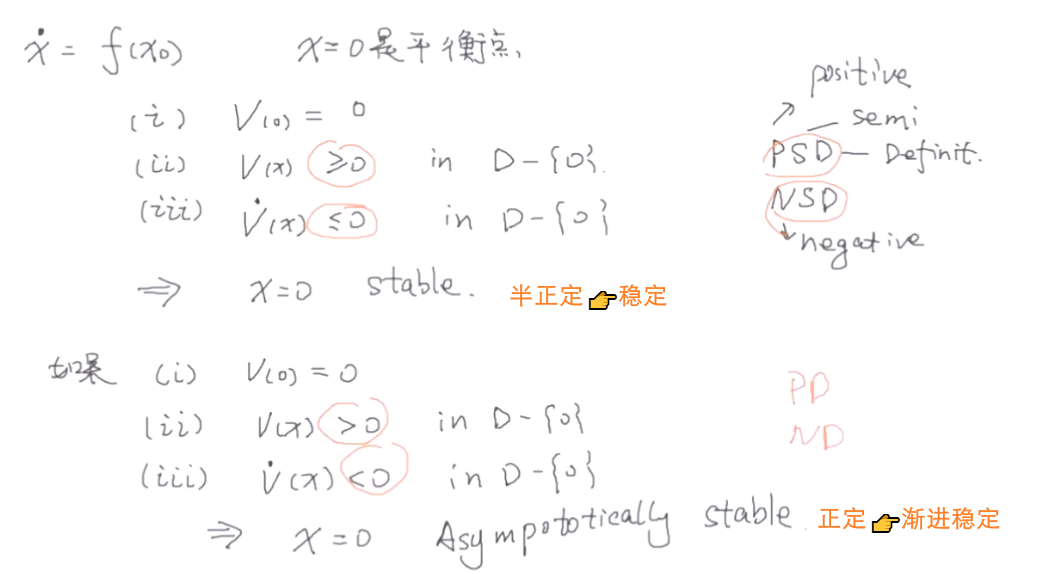 ẋ = f(x0) x=0是平衡点、
(i) V(0) = 0
(ii) V(x) ≥0 in D-{0}.
(iii) V̇(x) ≤0 in D-{0}
⇒ x=0 stable. 半正定👉稳定
positive
semi
PSD — Definit.
NSD
negative
如果 (i) V(0) = 0
(ii) V(x) >0 in D-{0}
(iii) V̇(x) <0 in D-{0}
⇒ x=0 Asympototically stable. 正定👉渐进稳定
PD
ND